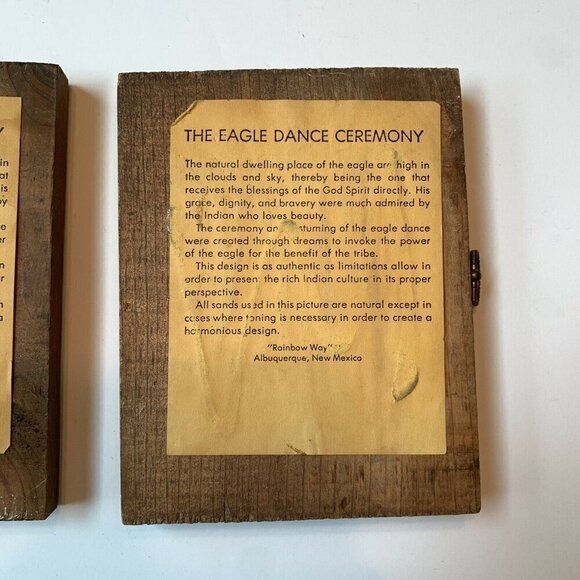 THE EAGLE DANCE CEREMONY
The natural dwelling place of the eagle are high in
the clouds and sky, thereby being the one that
receives the blessings of the God Spirit directly. His
grace, dignity, and bravery were much admired by
the Indian who loves beauty.
The ceremony and costuming of the eagle dance
were created through dreams to invoke the power
of the eagle for the benefit of the tribe.
This design is as authentic as limitations allow in
order to present the rich Indian culture in its proper
perspective.
All sands used in this picture are natural except in
cases where toning is necessary in order to create a
harmonious design.
"Rainbow Way"
Albuquerque, New Mexico